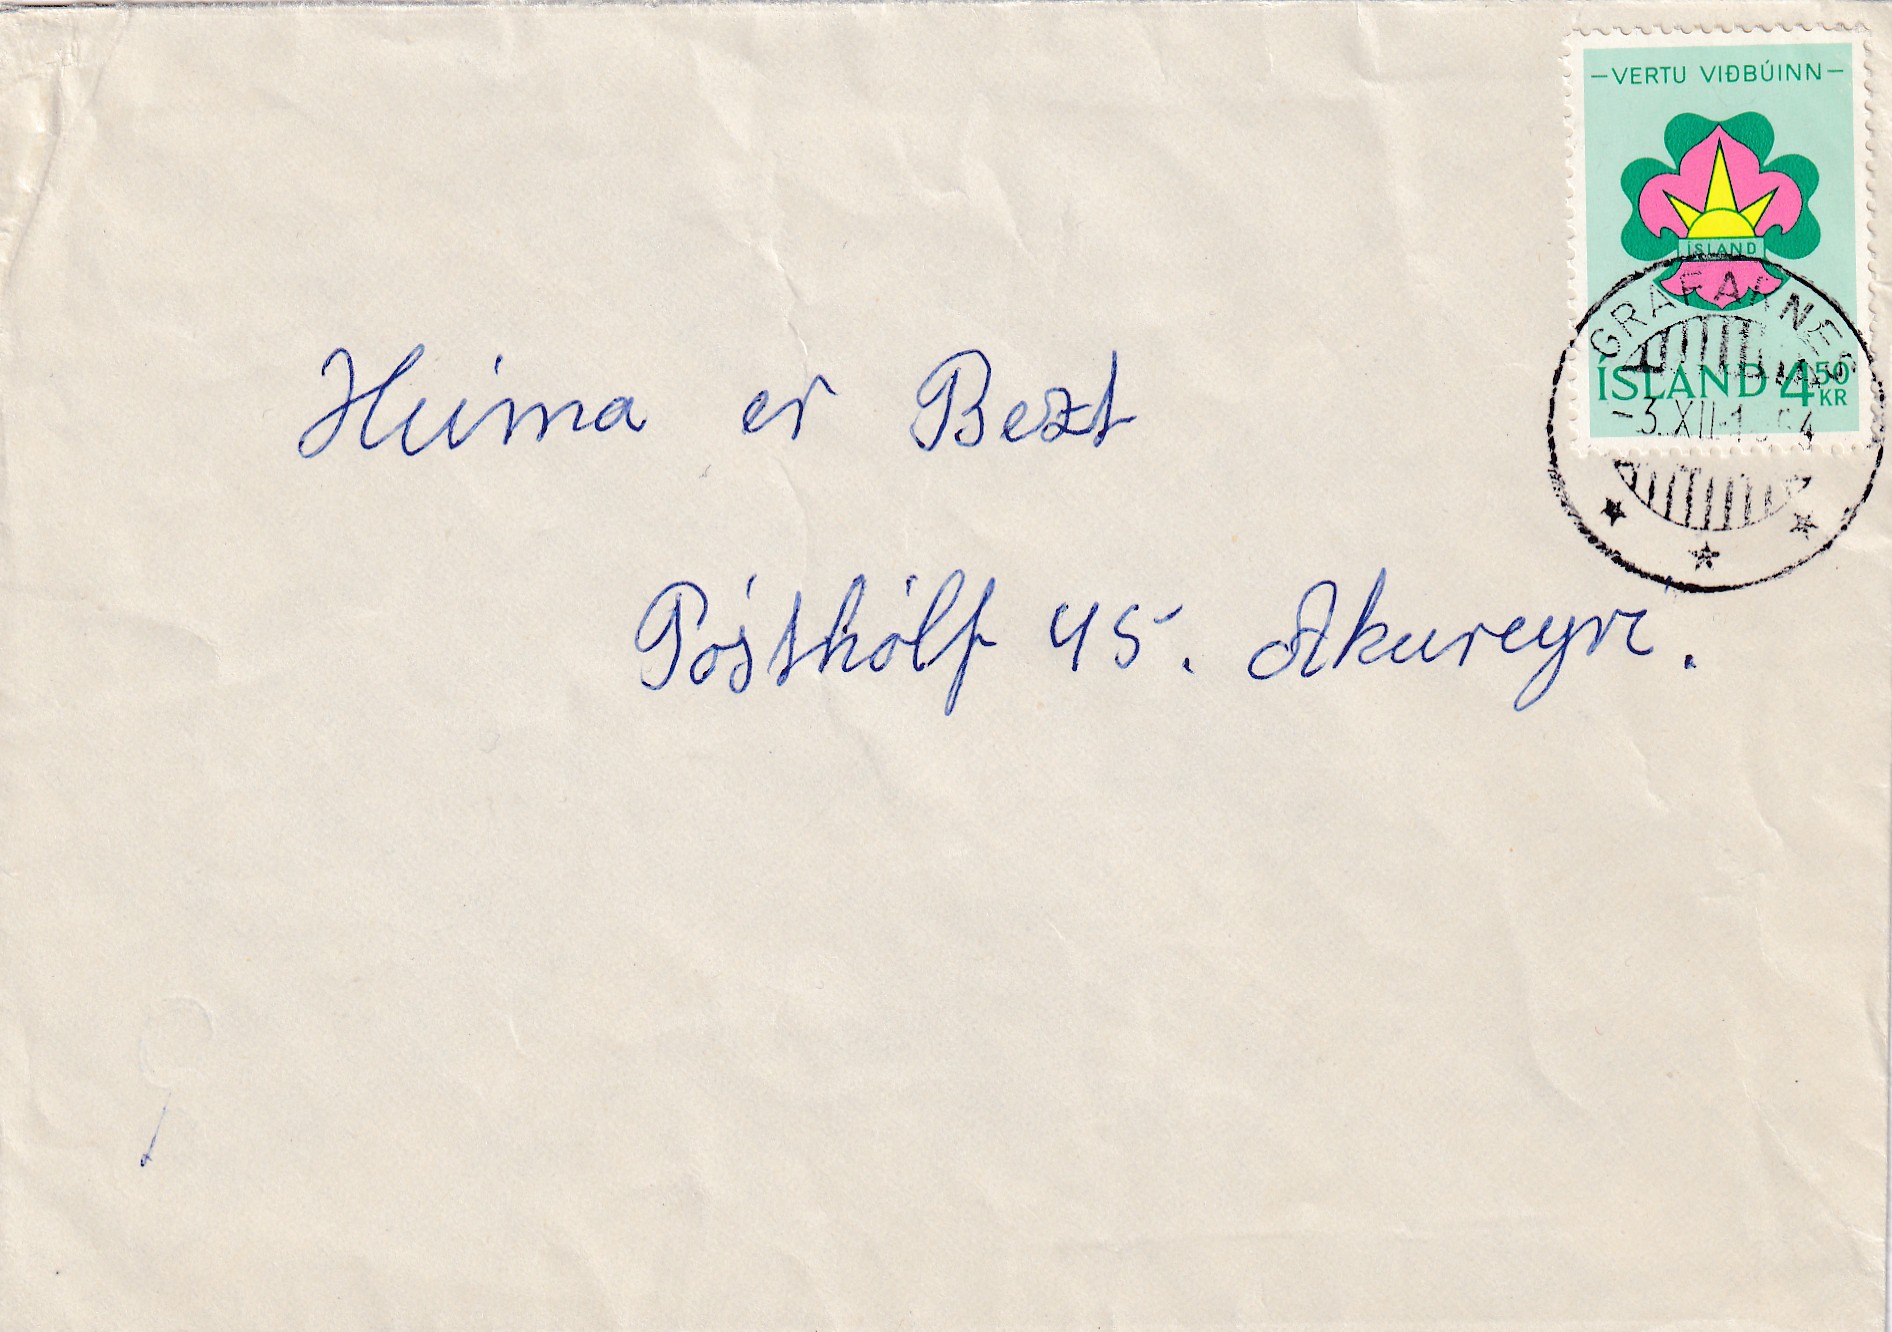 – VERTU VIÐBÚINN –
ÍSLAND
GRAFARNES
ÍSLAND 4 50 KR
-3.XII.1964
Heima er Bezt
Pósthólf 45. Akureyri.